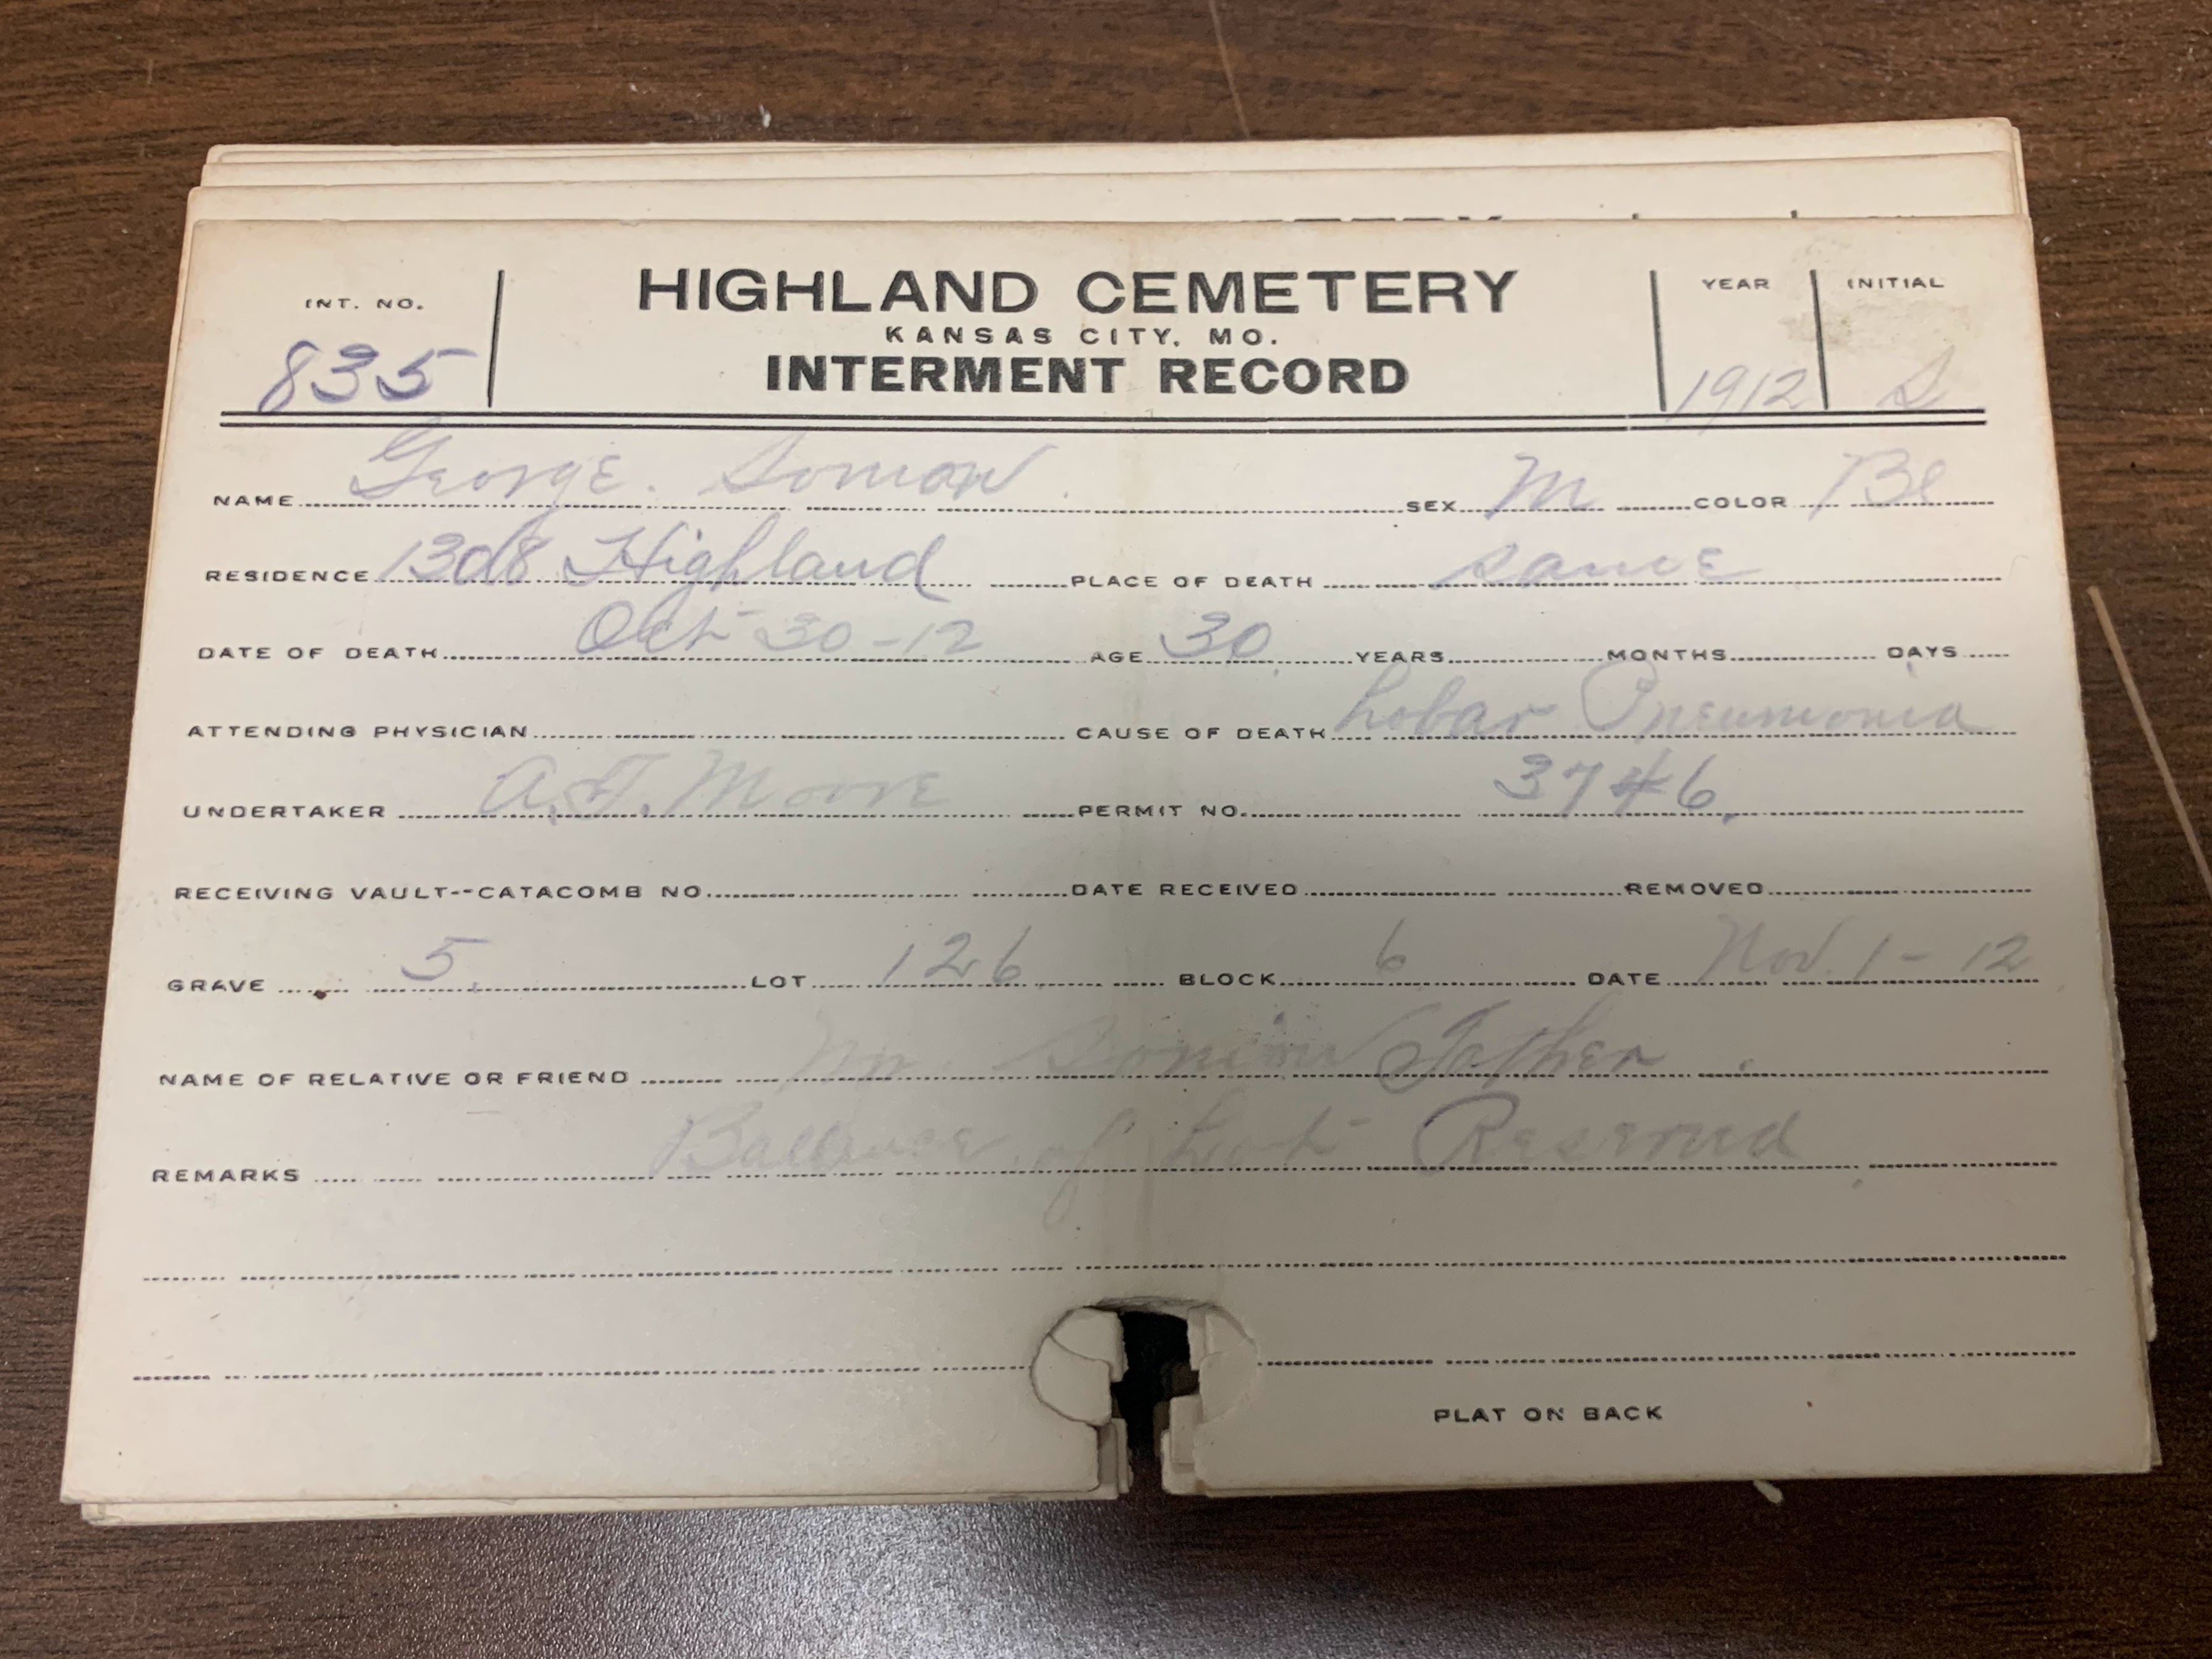 INT. NO. HIGHLAND CEMETERY YEAR INITIAL
KANSAS CITY, MO.
835 INTERMENT RECORD 1912 S
NAME George SEX M COLOR Bl
RESIDENCE 1308 Highland PLACE OF DEATH same
DATE OF DEATH Oct 30-12 AGE 30 YEARS MONTHS DAYS
ATTENDING PHYSICIAN CAUSE OF DEATH Lobar Pneumonia
UNDERTAKER A.T. Moore PERMIT NO. 3746
RECEIVING VAULT--CATACOMB NO. DATE RECEIVED REMOVED
GRAVE 5 LOT 126 BLOCK 6 DATE Nov. 1-12
NAME OF RELATIVE OR FRIEND Father
REMARKS of Lot Reserved
PLAT ON BACK